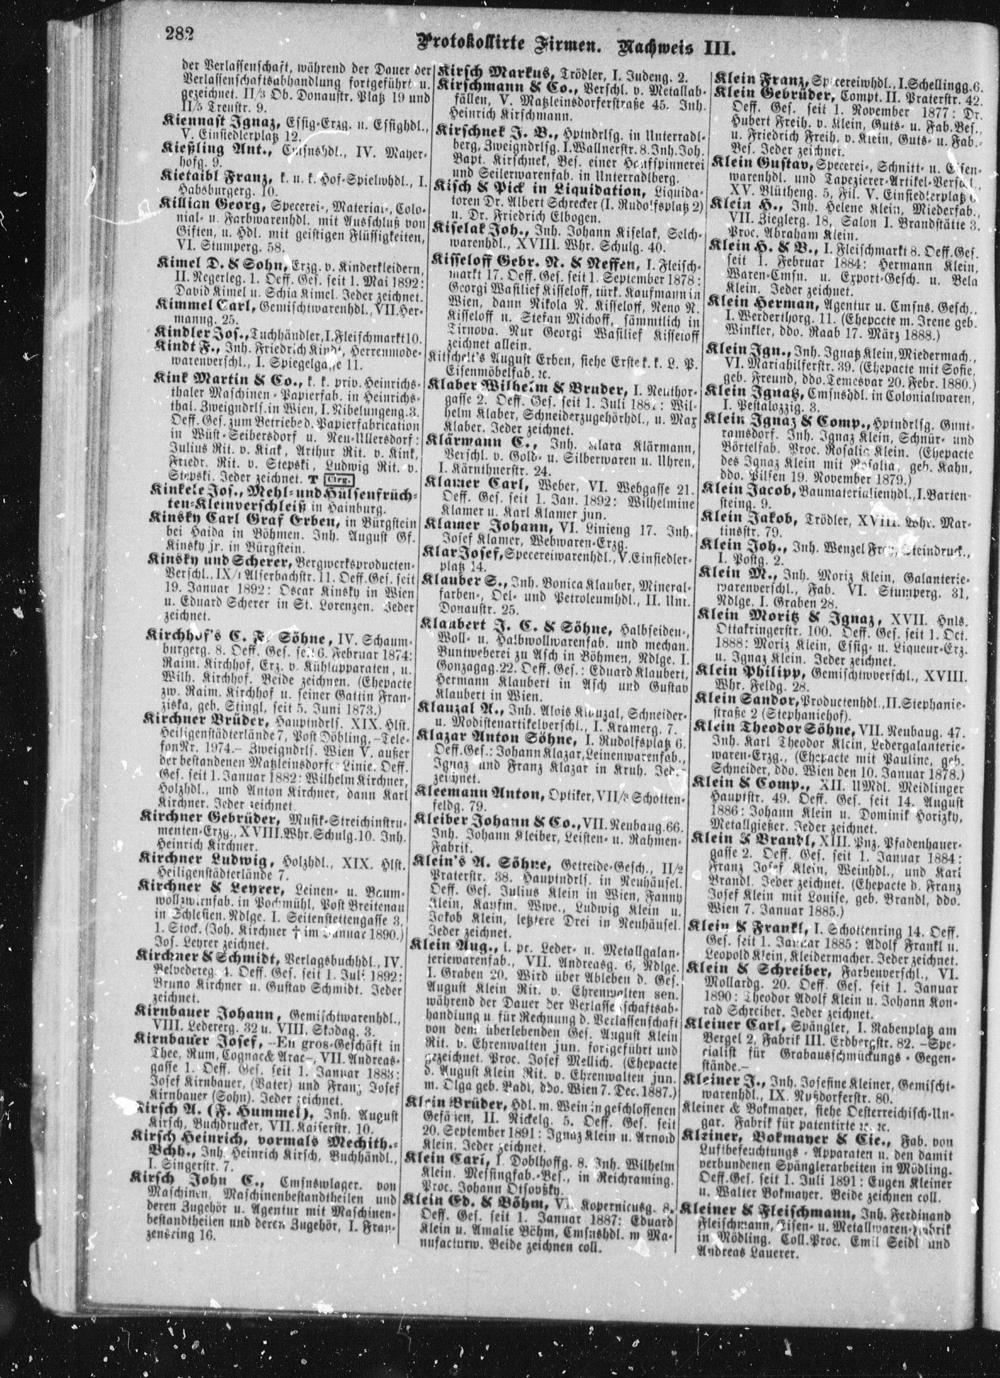 282
Protokollirte Firmen. Nachweis III.
der Verlassenschaft, während der Dauer der
Verlassenschaftsabhandlung fortgeführt u.
gezeichnet. II/3 Ob. Donaustr. Platz 19 und
II/3 Treustr. 9.
Kiennast Ignaz, Essig-Erzg. u. Essighdl.,
V. Einsiedlerplatz 12.
Kießling Ant., Cmsnshdl., IV. Mayer-
hofg. 9.
Kietaibl Franz, k. u. k. Hof-Spielwhdl., I.
Habsburgerg. 10.
Killian Georg, Specerei-, Material-, Colo-
nial- u. Farbwarenhdl. mit Ausschluß von
Giften, u. Hdl. mit geistigen Flüssigkeiten,
VI. Stumperg. 58.
Kimel D. & Sohn, Erzg. v. Kinderkleidern,
II. Negerleg. 1. Oeff. Ges. seit 1. Mai 1892:
David Kimel u. Schia Kimel. Jeder zeichnet.
Kimmel Carl, Gemischtwarenhdl., VII. Her-
manng. 25.
Kindler Jos., Tuchhändler, I. Fleischmarkt 10.
Kindt F., Inh. Friedrich Kindt, Herrenmode-
warenverschl., I. Spiegelgasse 11.
Kink Martin & Co., k. k. priv. Heinrichs-
thaler Maschinen-Papierfab. in Heinrichs-
thal. Zweigndrls. in Wien, I. Nibelungeng. 3.
Oeff. Ges. zum Betriebe d. Papierfabrication
in Wüst-Seibersdorf u. Neu-Ullersdorf:
Julius Rit. v. Kink, Arthur Rit. v. Kink,
Friedr. Rit. v. Stepski, Ludwig Rit. v.
Stepski. Jeder zeichnet. T Cirg.
Kinkele Jos., Mehl- und Hülsenfrüch-
ten-Kleinverschleiß in Hainburg.
Kinsky Carl Graf Erben, in Bürgstein
bei Haida in Böhmen. Inh. August Gf.
Kinsky jr. in Bürgstein.
Kinsky und Scherer, Bergwerksproducten-
Verschl., IX/1 Alserbachstr. 11. Oeff. Ges. seit
19. Januar 1892: Oscar Kinsky in Wien
u. Eduard Scherer in St. Lorenzen. Jeder
zeichnet.
Kirchhof's C. F. Söhne, IV. Schaum-
burgerg. 8. Oeff. Ges. seit 6. Februar 1874:
Raim. Kirchhof, Erz. v. Kühlapparaten, u.
Wilh. Kirchhof. Beide zeichnen. (Ehepacte
zw. Raim. Kirchhof u. seiner Gattin Fran-
ziska, geb. Stingl, seit 5. Juni 1873.)
Kirchner Brüder, Hauptndrls. XIX. Hlst.
Heiligenstädterlände 7, Post Döbling. –Tele-
fon Nr. 1974.– Zweigndrls. Wien V. außer
der bestandenen Matzleinsdorfer Linie. Oeff.
Ges. seit 1. Januar 1882: Wilhelm Kirchner,
Holzhdl., und Anton Kirchner, dann Karl
Kirchner. Jeder zeichnet.
Kirchner Gebrüder, Musik-Streichinstru-
menten-Erzg., XVIII. Whr. Schulg. 10. Inh.
Heinrich Kirchner.
Kirchner Ludwig, Holzhdl., XIX. Hlst.
Heiligenstädterlände 7.
Kirchner & Leyrer, Leinen- u. Baum-
wollwarenfab. in Pochmühl, Post Breitenau
in Schlesien. Ndlge. I. Seitenstettengasse 3,
1. Stock. (Joh. Kirchner † im Januar 1890.)
Jos. Leyrer zeichnet.
Kirchner & Schmidt, Verlagsbuchhdl., IV.
Belvedereg. 4. Oeff. Ges. seit 1. Juli 1892:
Bruno Kirchner u. Gustav Schmidt. Jeder
zeichnet.
Kirnbauer Johann, Gemischtwarenhdl.,
VIII. Lederergr. 32 u. VIII. Skodag. 3.
Kirnbauer Josef, –En gros-Geschäft in
Thee, Rum, Cognac & Arac–, VII. Andreas-
gasse 1. Oeff. Ges. seit 1. Januar 1883:
Josef Kirnbauer, (Vater) und Franz Josef
Kirnbauer (Sohn). Jeder zeichnet.
Kirsch A. (F. Hummel), Inh. August
Kirsch, Buchdrucker, VII. Kaiserstr. 10.
Kirsch Heinrich, vormals Mechith.-
Bchh., Inh. Heinrich Kirsch, Buchhändl.,
I. Singerstr. 7.
Kirsch John C., Cmsnswlager. von
Maschinen, Maschinenbestandtheilen und
deren Zugehör u. Agentur mit Maschinen-
bestandtheilen und deren Zugehör, I. Fran-
zensring 16.
Kirsch Markus, Trödler, I. Judeng. 2.
Kirschmann & Co., Verschl. v. Metallab-
fällen, V. Matzleinsdorferstraße 45. Inh.
Heinrich Kirschmann.
Kirschnek J. B., Hptndrlsg. in Unterradl-
berg, Zweigndrlsg. I. Wallnerstr. 8. Inh. Joh.
Bapt. Kirschnek, Bes. einer Hanfspinnerei
und Seilerwarenfab. in Unterradlberg.
Kisch & Pick in Liquidation, Liquida-
toren Dr. Albert Schrecker (I. Rudolfsplatz 2)
u. Dr. Friedrich Elbogen.
Kiselak Joh., Inh. Johann Kiselak, Selch-
warenhdl., XVIII. Whr. Schulg. 40.
Kisseloff Gebr. N. & Neffen, I. Fleisch-
markt 17. Oeff. Ges. seit 1. September 1878:
Georgi Wasilief Kisseloff, türk. Kaufmann in
Wien, dann Nikola N. Kisseloff, Neno N.
Kisseloff u. Stefan Michoff, sämmtlich in
Tirnova. Nur Georgi Wasilief Kisseloff
zeichnet allein.
Kitschelt's August Erben, siehe Erste k. k. L. P.
Eisenmöbelfab. ꝛc.
Klaber Wilhelm & Bruder, I. Neuthor-
gasse 2. Oeff. Ges. seit 1. Juli: Wil-
helm Klaber, Schneiderzugehörhdl., u. Max
Klaber. Jeder zeichnet.
Klärmann C., Inh. Klara Klärmann,
Verschl. v. Gold- u. Silberwaren u. Uhren,
I. Kärnthnerstr. 24.
Klamer Carl, Weber, VI. Webgasse 21.
Oeff. Ges. seit 1. Jan. 1892: Wilhelmine
Klamer u. Karl Klamer jun.
Klamer Johann, VI. Linieng 17. Inh.
Josef Klamer, Webwaren-Erzg.
Klar Josef, Specereiwarenhdl., V. Einsiedler-
platz 14.
Klauber S., Inh. Bonica Klauber, Mineral-
farben-, Oel- und Petroleumhdl., II. Unt.
Donaustr. 25.
Klaubert J. C. & Söhne, Halbseiden-,
Woll- u. Halbwollwarenfab. und mechan.
Buntweberei zu Asch in Böhmen, Ndlge. I.
Gonzagag. 22. Oeff. Ges.: Eduard Klaubert,
Hermann Klaubert in Asch und Gustav
Klaubert in Wien.
Klauzal A., Inh. Alois Klauzal, Schneider-
u. Modistenartikelverschl., I. Kramerg. 7.
Klazar Anton Söhne, I. Rudolfsplatz 6.
Oeff. Ges.: Johann Klazar, Leinenwarenfab.,
Ignaz und Franz Klazar in Kruh. Jeder
zeichnet.
Kleemann Anton, Optiker, VII/2 Schotten-
feldg. 79.
Kleiber Johann & Co., VII. Neubaug. 66.
Inh. Johann Kleiber, Leisten- u. Rahmen-
Fabrik.
Klein's A. Söhne, Getreide-Gesch., II/2
Praterstr. 38. Hauptndrls. in Neuhäusel.
Oeff. Ges. Julius Klein in Wien, Fanny
Klein, Kaufm. Wwe., Ludwig Klein u.
Jakob Klein, letztere Drei in Neuhäusel.
Jeder zeichnet.
Klein Aug., l. pr. Leder- u. Metallgalan-
teriewarenfab., VII. Andreasg. 6, Ndlge.
I. Graben 20. Wird über Ableben d. Ges.
August Klein Rit. v. Ehrenwalten sen.
während der Dauer der Verlassenschaftsab-
handlung u. für Rechnung d. Verlassenschaft
von dem überlebenden Ges. August Klein
Rit. v. Ehrenwalten jun. fortgeführt und
gezeichnet. Proc. Josef Mellich. (Ehepacte
d. August Klein Rit. v. Ehrenwalten jun.
m. Olga geb. Padi, ddo. Wien 7. Dec. 1887.)
Klein Brüder, Hdl. m. Wein in geschlossenen
Gefäßen, II. Nickelg. 5. Oeff. Ges. seit
20. September 1891: Ignaz Klein u. Arnold
Klein. Jeder zeichnet.
Klein Carl, I. Doblhoffg. 8. Inh. Wilhelm
Klein, Messingfab.-Bes., in Reichraming.
Proc. Johann Otsovsky.
Klein Ed. & Böhm, VI. Kopernicusg. 8.
Oeff. Ges. seit 1. Januar 1887: Eduard
Klein u. Amalie Böhm, Cmsnshdl. m Ma-
nufacturw. Beide zeichnen coll.
Klein Franz, Specereiwhdl., I. Schellingg. 6.
Klein Gebrüder, Compt. II. Praterstr. 42.
Oeff. Ges. seit 1. November 1877: Dr.
Hubert Freih. v. Klein, Guts- u. Fab. Bes.,
u. Friedrich Freih. v. Klein, Guts- u. Fab.-
Bes. Jeder zeichnet.
Klein Gustav, Specerei-, Schnitt- u. Eisen-
warenhdl. und Tapezierer-Artikel-Verschl.,
XV. Blütheng. 5, Fil. V. Einsiedlerplatz
Klein H., Inh. Helene Klein, Miederfab.,
VII. Zieglerg. 18, Salon I. Brandstätte 3.
Proc. Abraham Klein.
Klein H. & B., I. Fleischmarkt 8. Oeff. Ges.
seit 1. Februar 1884: Hermann Klein,
Waren-Cmsn. u. Export-Gesch. u. Bela
Klein. Jeder zeichnet.
Klein Herman, Agentur u. Cmsns. Gesch.,
I. Werderthorg. 11. (Ehepacte m. Irene geb.
Winkler, ddo. Raab 17. März 1888.)
Klein Ign., Inh. Ignatz Klein, Miedermach.,
VI. Mariahilferstr. 39. (Ehepacte mit Sofie,
geb. Freund, ddo. Temesvar 20. Febr. 1880.)
Klein Ignatz, Cmsnshdl. in Colonialwaren,
I. Pestalozzig. 3.
Klein Ignaz & Comp., Hptndrlsg. Gunt-
ramsdorf. Inh. Ignaz Klein, Schnür- und
Börtelfab. Proc. Rosalie Klein. (Ehepacte
des Ignaz Klein mit Rosalia, geb. Kahn,
ddo. Pilsen 19. November 1879.)
Klein Jacob, Baumaterialienhdl., I. Barten-
steing. 9.
Klein Jakob, Trödler, XVIII. Whr. Mar-
tinsstr. 79.
Klein Joh., Inh. Wenzel Steindruck.,
I. Postg. 2.
Klein M., Inh. Moriz Klein, Galanterie-
warenverschl., Fab. VI. Stumperg. 31,
Ndlge. I. Graben 28.
Klein Moritz & Ignaz, XVII. Hnls.
Ottakringerstr. 100. Oeff. Ges. seit 1. Oct.
1888: Moriz Klein, Essig- u. Liqueur-Erz.
u. Ignaz Klein. Jeder zeichnet.
Klein Philipp, Gemischtwverschl., XVIII.
Whr. Feldg. 28.
Klein Sandor, Productenhdl., II. Stephanie-
straße 2 (Stephaniehof).
Klein Theodor Söhne, VII. Neubaug. 47.
Inh. Karl Theodor Klein, Ledergalanterie-
waren-Erzg., (Ehepacte mit Pauline, geb.
Schneider, ddo. Wien den 10. Januar 1878.)
Klein & Comp., XII. UMdl. Meidlinger
Hauptstr. 49. Oeff. Ges. seit 14. August
1886: Johann Klein u. Dominik Horizky,
Metallgießer. Jeder zeichnet.
Klein & Brandl, XIII. Pnz. Pfadenhauer-
gasse 2. Oeff. Ges. seit 1. Januar 1884:
Franz Josef Klein, Weinhdl., und Karl
Brandl. Jeder zeichnet. (Ehepacte d. Franz
Josef Klein mit Louise, geb. Brandl, ddo.
Wien 7. Januar 1885.)
Klein & Frankl, I. Schottenring 14. Oeff.
Ges. seit 1. Januar 1885: Adolf Frankl u.
Leopold Klein, Kleidermacher. Jeder zeichnet.
Klein & Schreiber, Farbenverschl., VI.
Mollardg. 20. Oeff. Ges. seit 1. Januar
1890: Theodor Adolf Klein u. Johann Kon-
rad Schreiber. Jeder zeichnet.
Kleiner Carl, Spängler, I. Rabenplatz am
Bergel 2, Fabrik III. Erdbergstr. 82. –Spe-
cialist für Grabausschmückungs-Gegen-
stände.–
Kleiner J., Inh. Josefine Kleiner, Gemischt-
warenhdl., IX. Nußdorferstr. 80.
Kleiner & Bokmayer, siehe Oesterreichisch-Un-
gar. Fabrik für patentirte ꝛc. ꝛc.
Kleiner, Bokmayer & Cie., Fab. von
Luftbefeuchtungs-Apparaten u. den damit
verbundenen Spänglerarbeiten in Mödling.
Oeff. Ges. seit 1. Juli 1891: Eugen Kleiner
u. Walter Bokmayer. Beide zeichnen coll.
Kleiner & Fleischmann, Inh. Ferdinand
Fleischmann, Eisen- u. Metallwaren-Fabrik
in Mödling. Coll. Proc. Emil Seidl und
Andreas Lauerer.